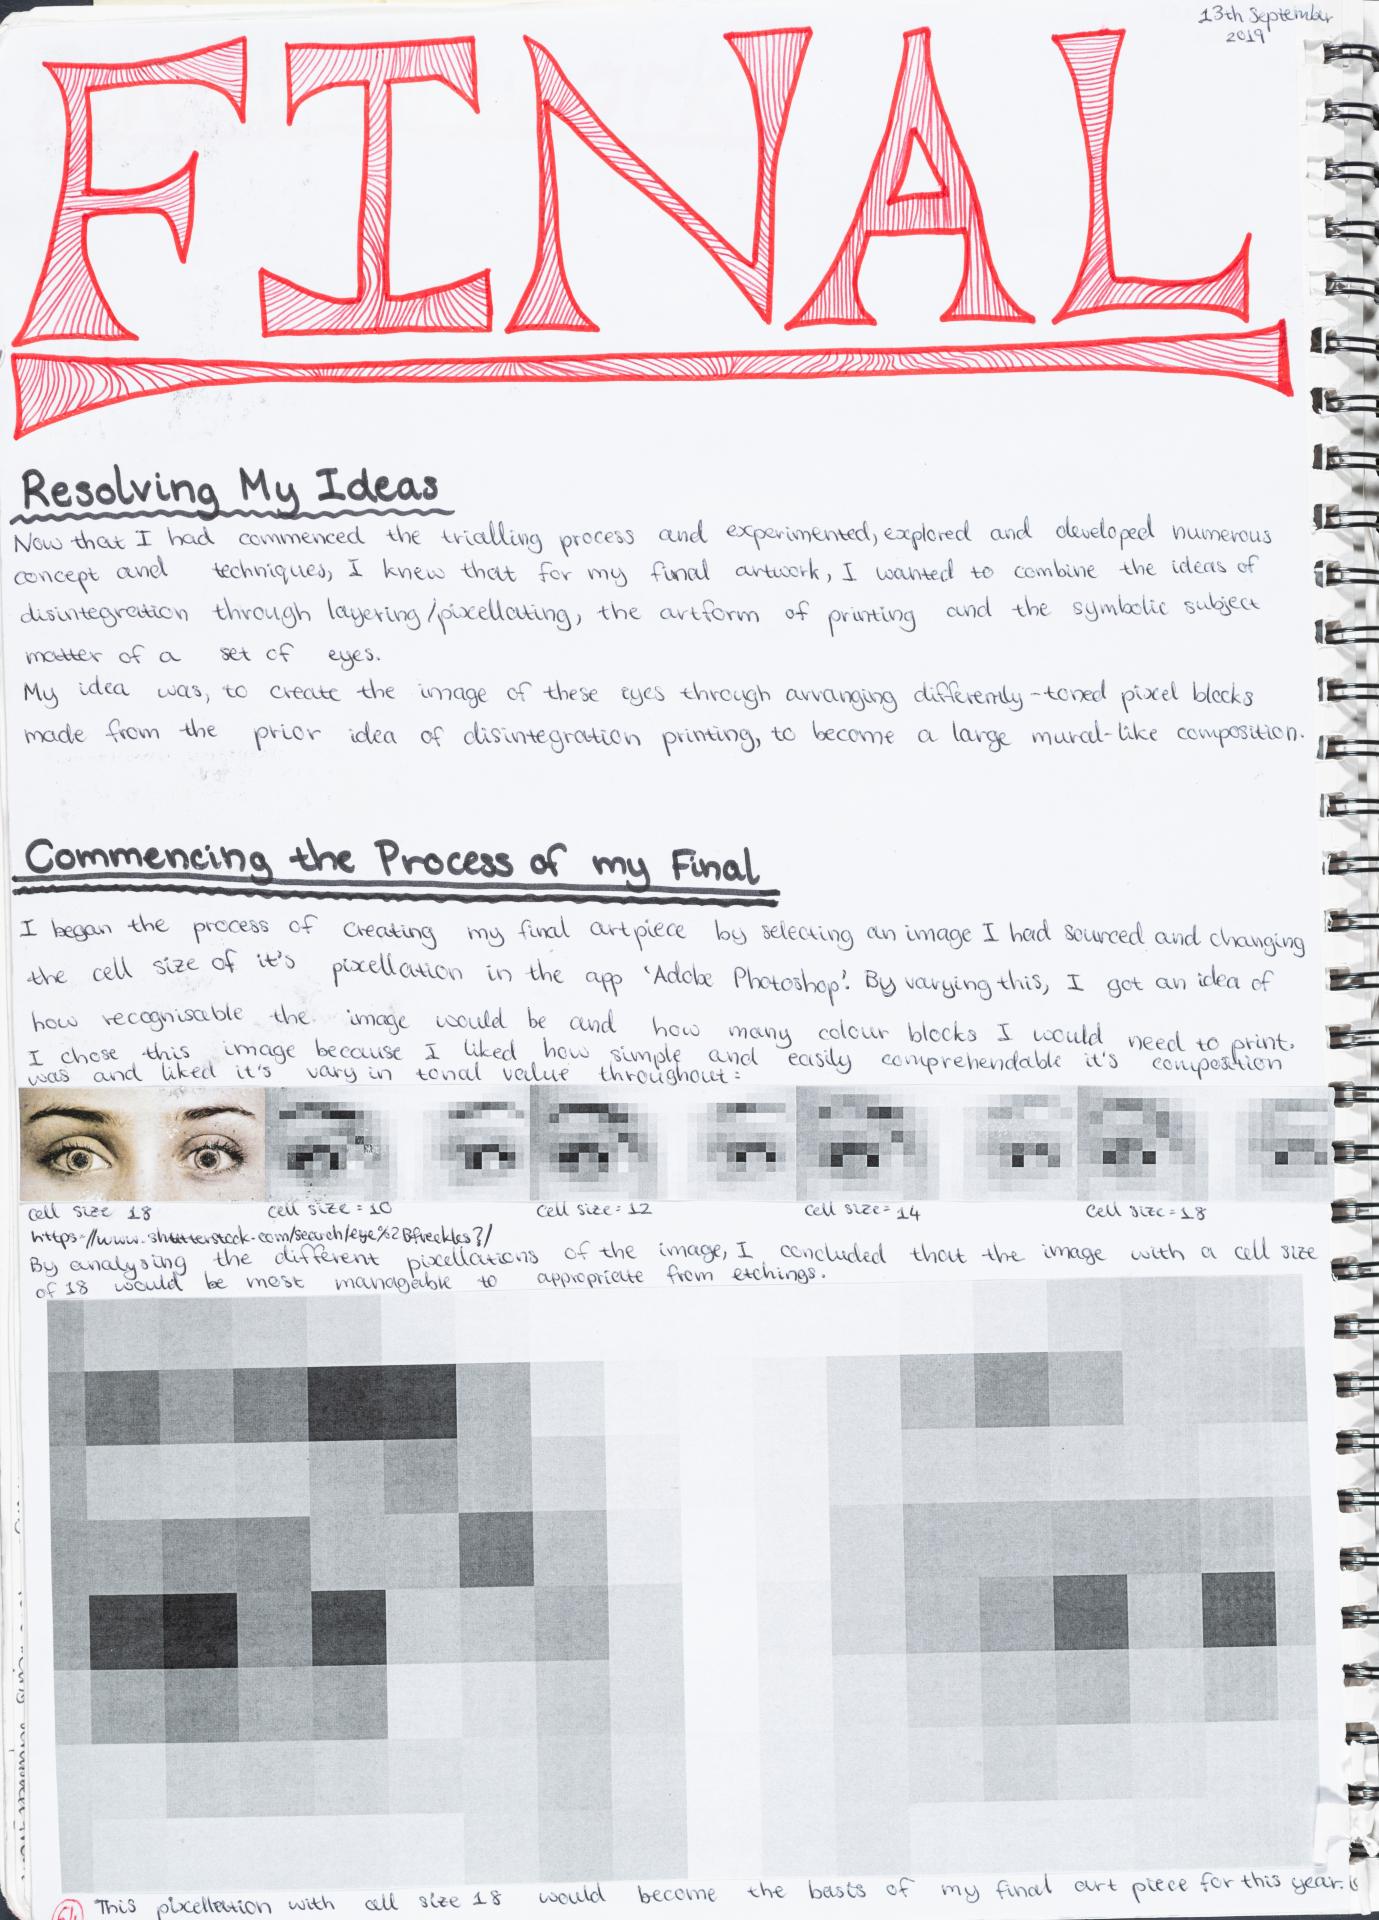 13th September
2019
FINAL
Resolving My Ideas
Now that I had commenced the trialling process and experimented, explored and developed numerous
concept and techniques, I knew that for my final artwork, I wanted to combine the ideas of
disintegration through layering/pixellating, the artform of printing and the symbolic subject
matter of a set of eyes.
My idea was, to create the image of these eyes through arranging differently-toned pixel blocks
made from the prior idea of disintegration printing, to become a large mural-like composition.
Commencing the Process of my Final
I began the process of creating my final artpiece by selecting an image I had sourced and changing
the cell size of it's pixellation in the app 'Adobe Photoshop'. By varying this, I got an idea of
how recognisable the image would be and how many colour blocks I would need to print.
I chose this image because I liked how simple and easily comprehendable it's composition
was and liked it's vary in tonal value throughout:
cell size 18 cell size = 10 cell size = 12 cell size = 14 cell size = 18
https://www.shutterstock.com/search/eye%2Bfreckles?/
By analysing the different pixellations of the image, I concluded that the image with a cell size
of 18 would be most managable to appropriate from etchings.
This pixellation with cell size 18 would become the basis of my final art piece for this year.
64